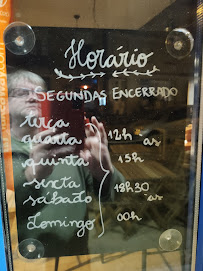 Horário
SEGUNDAS ENCERRADO
terça
quarta 12h às
quinta 15h
sexta
sábado 18h30 às
Domingo 00h